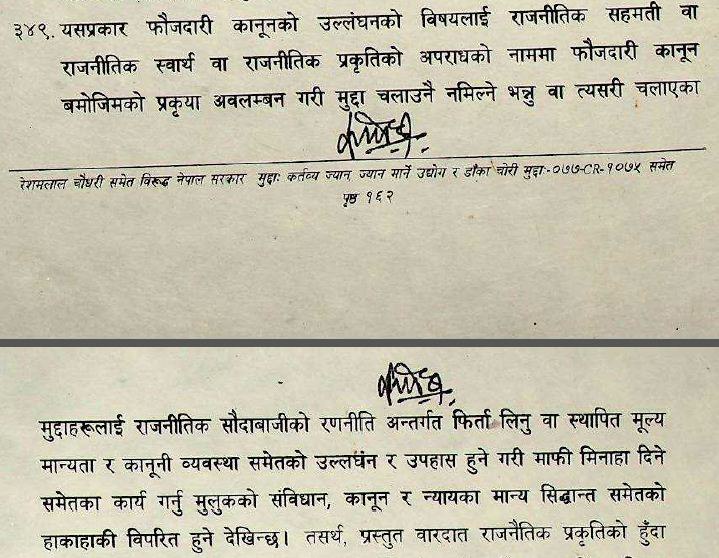 ३४९. यसप्रकार फौजदारी कानूनको उल्लंघनको विषयलाई राजनीतिक सहमती वा
राजनीतिक स्वार्थ वा राजनीतिक प्रकृतिको अपराधको नाममा फौजदारी कानून
बमोजिमको प्रकृया अवलम्बन गरी मुद्दा चलाउनै नमिल्ने भन्नु वा त्यसरी चलाएका
रेशमलाल चौधरी समेत विरूद्ध नेपाल सरकार मुद्दाः कर्तव्य ज्यान ज्यान मार्ने उद्योग र डाँका चोरी मुद्दाः-०७७-CR-१०७५ समेत
पृष्ठ १६२
मुद्दाहरूलाई राजनीतिक सौदाबाजीको रणनीति अन्तर्गत फिर्ता लिनु वा स्थापित मूल्य
मान्यता र कानूनी व्यवस्था समेतको उल्लघंन र उपहास हुने गरी माफी मिनाहा दिने
समेतका कार्य गर्नु मुलुकको संविधान, कानून र न्यायका मान्य सिद्धान्त समेतको
हाकाहाकी विपरित हुने देखिन्छ। तसर्थ, प्रस्तुत वारदात राजनैतिक प्रकृतिको हुँदा